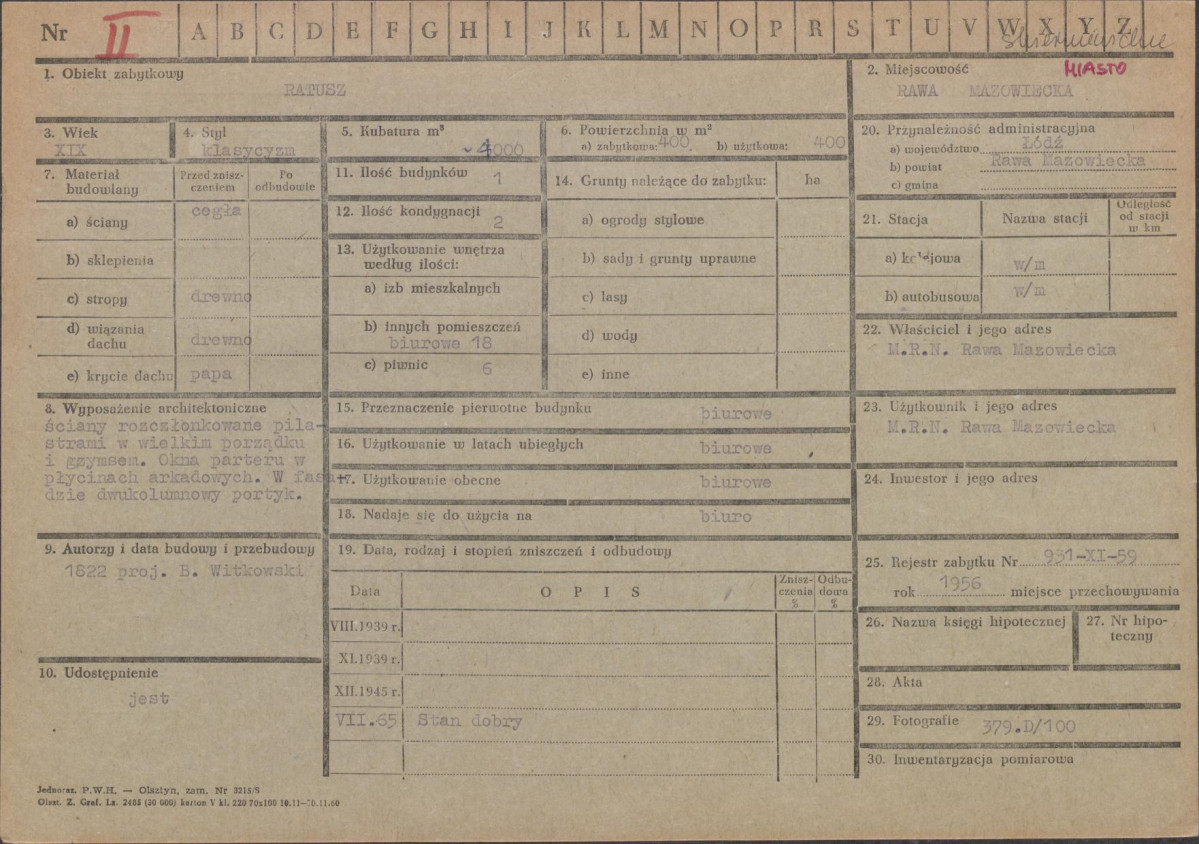 Nr II A B C D E F G H I J K L M N O P R S T U V W X Y Z
Skierniewickie
1. Obiekt zabytkowy
RATUSZ
2. Miejscowość MIASTO
RAWA MAZOWIECKA
3. Wiek
XIX
4. Styl
klasycyzm
5. Kubatura m³
~4000
6. Powierzchnia w m²
a) zabytkowa: 400 b) użytkowa: 400
7. Materiał budowlany
Przed znisz-
czeniem
Po
odbudowie
a) ściany cegła
b) sklepienia
c) stropy drewno
d) wiązania
dachu drewno
e) krycie dachu papa
8. Wyposażenie architektoniczne
ściany rozczłonkowane pila-
strami w wielkim porządku
i gzymsem. Okna parteru w
płycinach arkadowych. W fasa-
dzie dwukolumnowy portyk.
9. Autorzy i data budowy i przebudowy
1822 proj. B. Witkowski
10. Udostępnienie
jest
11. Ilość budynków 1
12. Ilość kondygnacji
2
13. Użytkowanie wnętrza
według ilości:
a) izb mieszkalnych
b) innych pomieszczeń
biurowe 18
c) piwnic 6
14. Grunty należące do zabytku: ha
a) ogrody stylowe
b) sady i grunty uprawne
c) lasy
d) wody
e) inne
15. Przeznaczenie pierwotne budynku biurowe
16. Użytkowanie w latach ubiegłych biurowe
17. Użytkowanie obecne biurowe
18. Nadaje się do użycia na biuro
19. Data, rodzaj i stopień zniszczeń i odbudowy
Data OPIS Znisz-
czenia
% Odbu-
dowa
%
VIII.1939 r.
XI.1939 r.
XII.1945 r.
VII.65 Stan dobry
20. Przynależność administracyjna
a) województwo Łódź
b) powiat Rawa Mazowiecka
c) gmina
21. Stacja Nazwa stacji Odległość
od stacji
w km
a) kolejowa w/m
b) autobusowa w/m
22. Właściciel i jego adres
M.R.N. Rawa Mazowiecka
23. Użytkownik i jego adres
M.R.N. Rawa Mazowiecka
24. Inwestor i jego adres
25. Rejestr zabytku Nr 931-XI-59
rok 1956 miejsce przechowywania
26. Nazwa księgi hipotecznej
27. Nr hipo-
teczny
28. Akta
29. Fotografie 379.D/100
30. Inwentaryzacja pomiarowa
Jednoraz. P.W.H. — Olsztyn, zam. Nr 3215/S
Olszt. Z. Graf. Lz. 2468 (30 000) karton V kl. 220 70x100 10.11—30.11.60